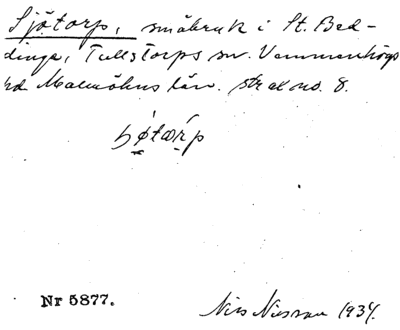 Sjötorp, småbruk i St. Bed-
dinge, Tullstorps sn. Vemmenhögs
hd. Malmöhus län. strax no. 8.
Nr 5877.
Nils Nilsson 1934.